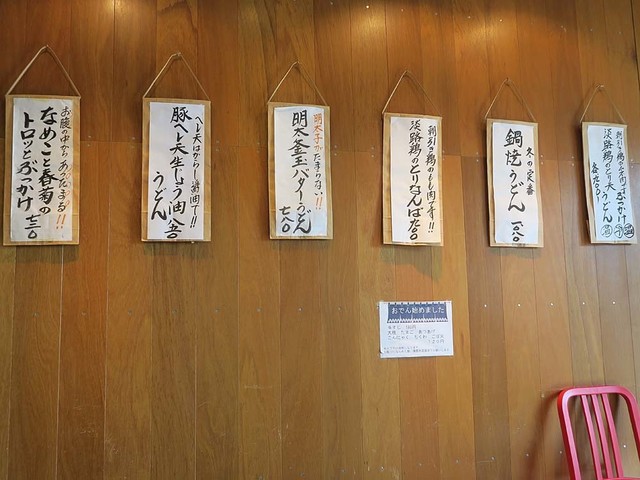 お腹の中からあったまる!!
なめこと春菊の
トロッとぶっかけ 七三〇
ヘレ天はからし醤油で!!
豚ヘレ天生じょう油
うどん 八五〇
明太子がたまらない!!
明太釜玉バターうどん
七八〇
朝引き鶏のもも肉です!!
淡路鶏のとりなんば 七八〇
冬の定番
鍋焼うどん 一〇八〇
朝引き鶏のムネ肉です
淡路鶏のとり天うどん
おでん始めました